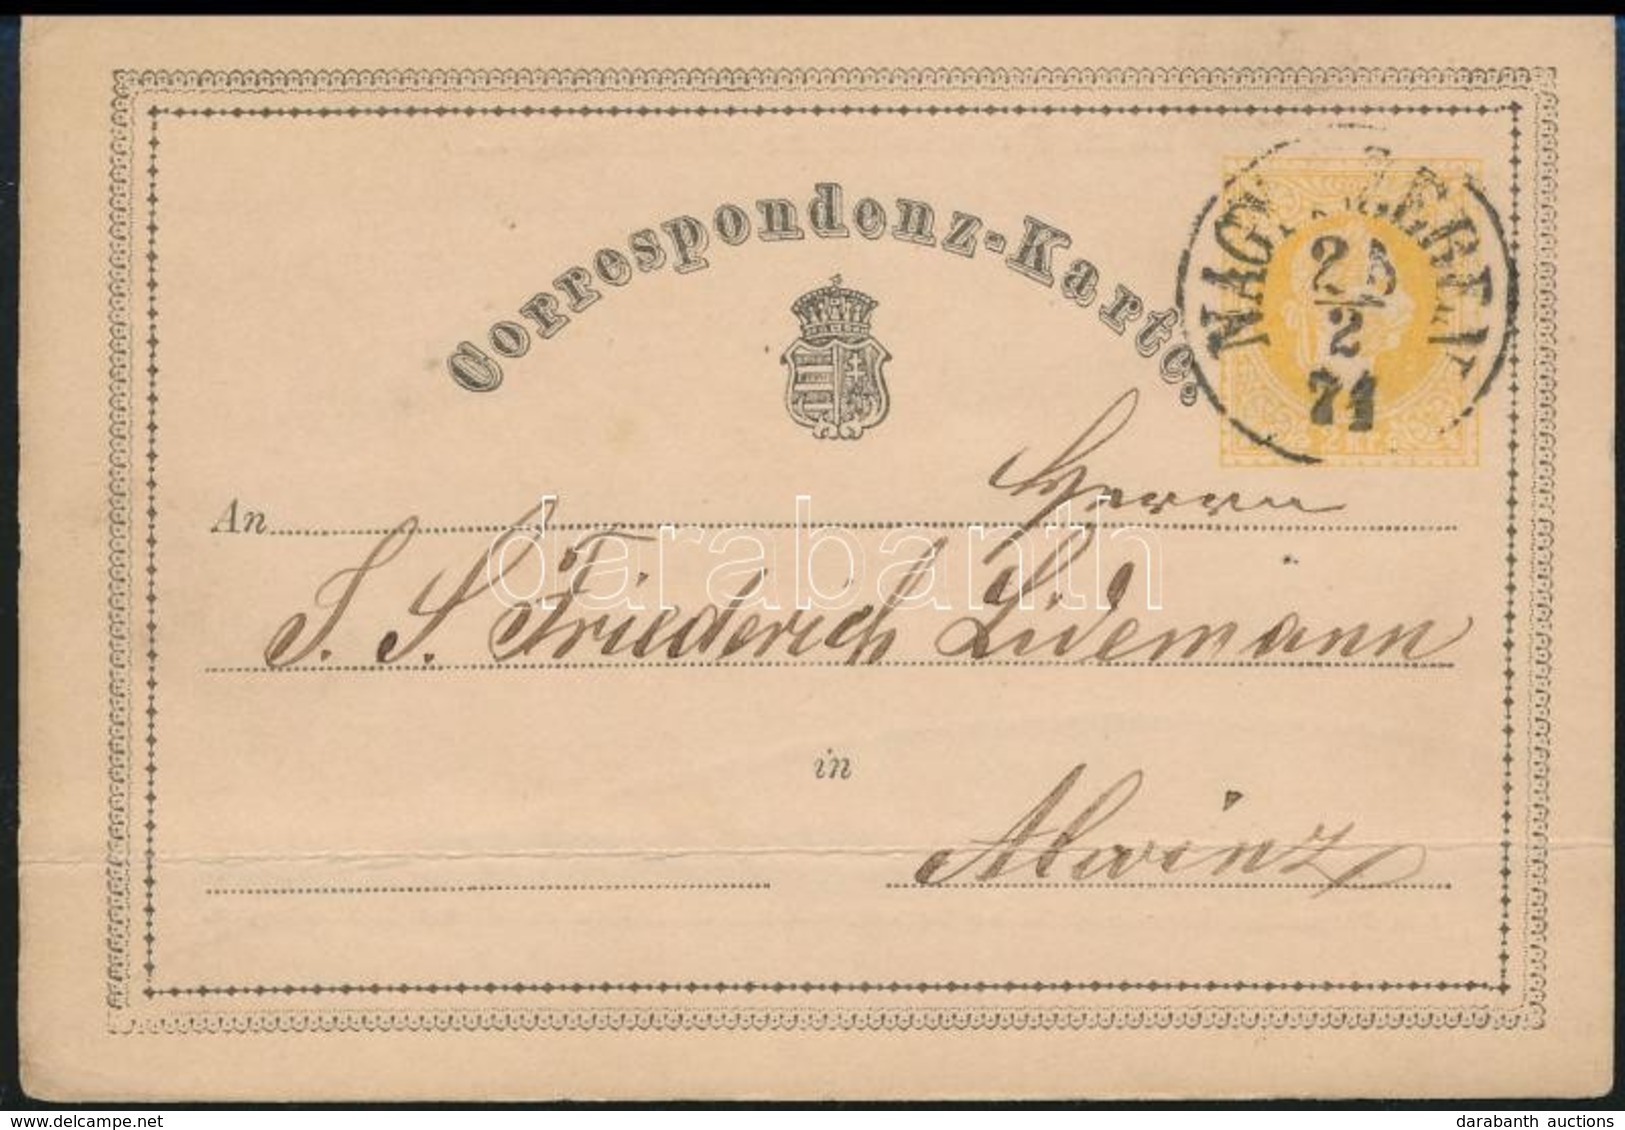 Correspondenz-Karte.
NAGY SZEBEN
2
71
An
Herrn
J. S. Friederich Lidemann
in
Alvinz
darabanth
delcampe.net
darabanth auctions